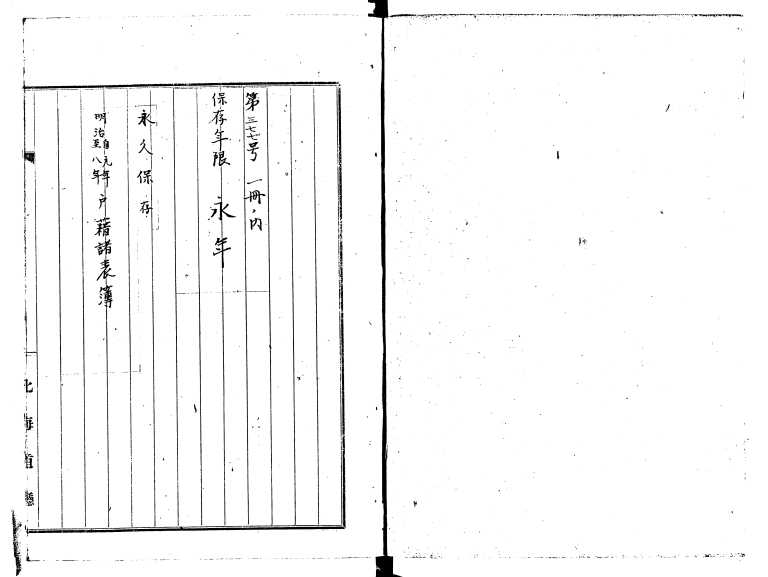 第三七七号 一冊ノ内
保存年限 永年
永久保存
明治自元年至八年戸籍諸表簿
北海道廳